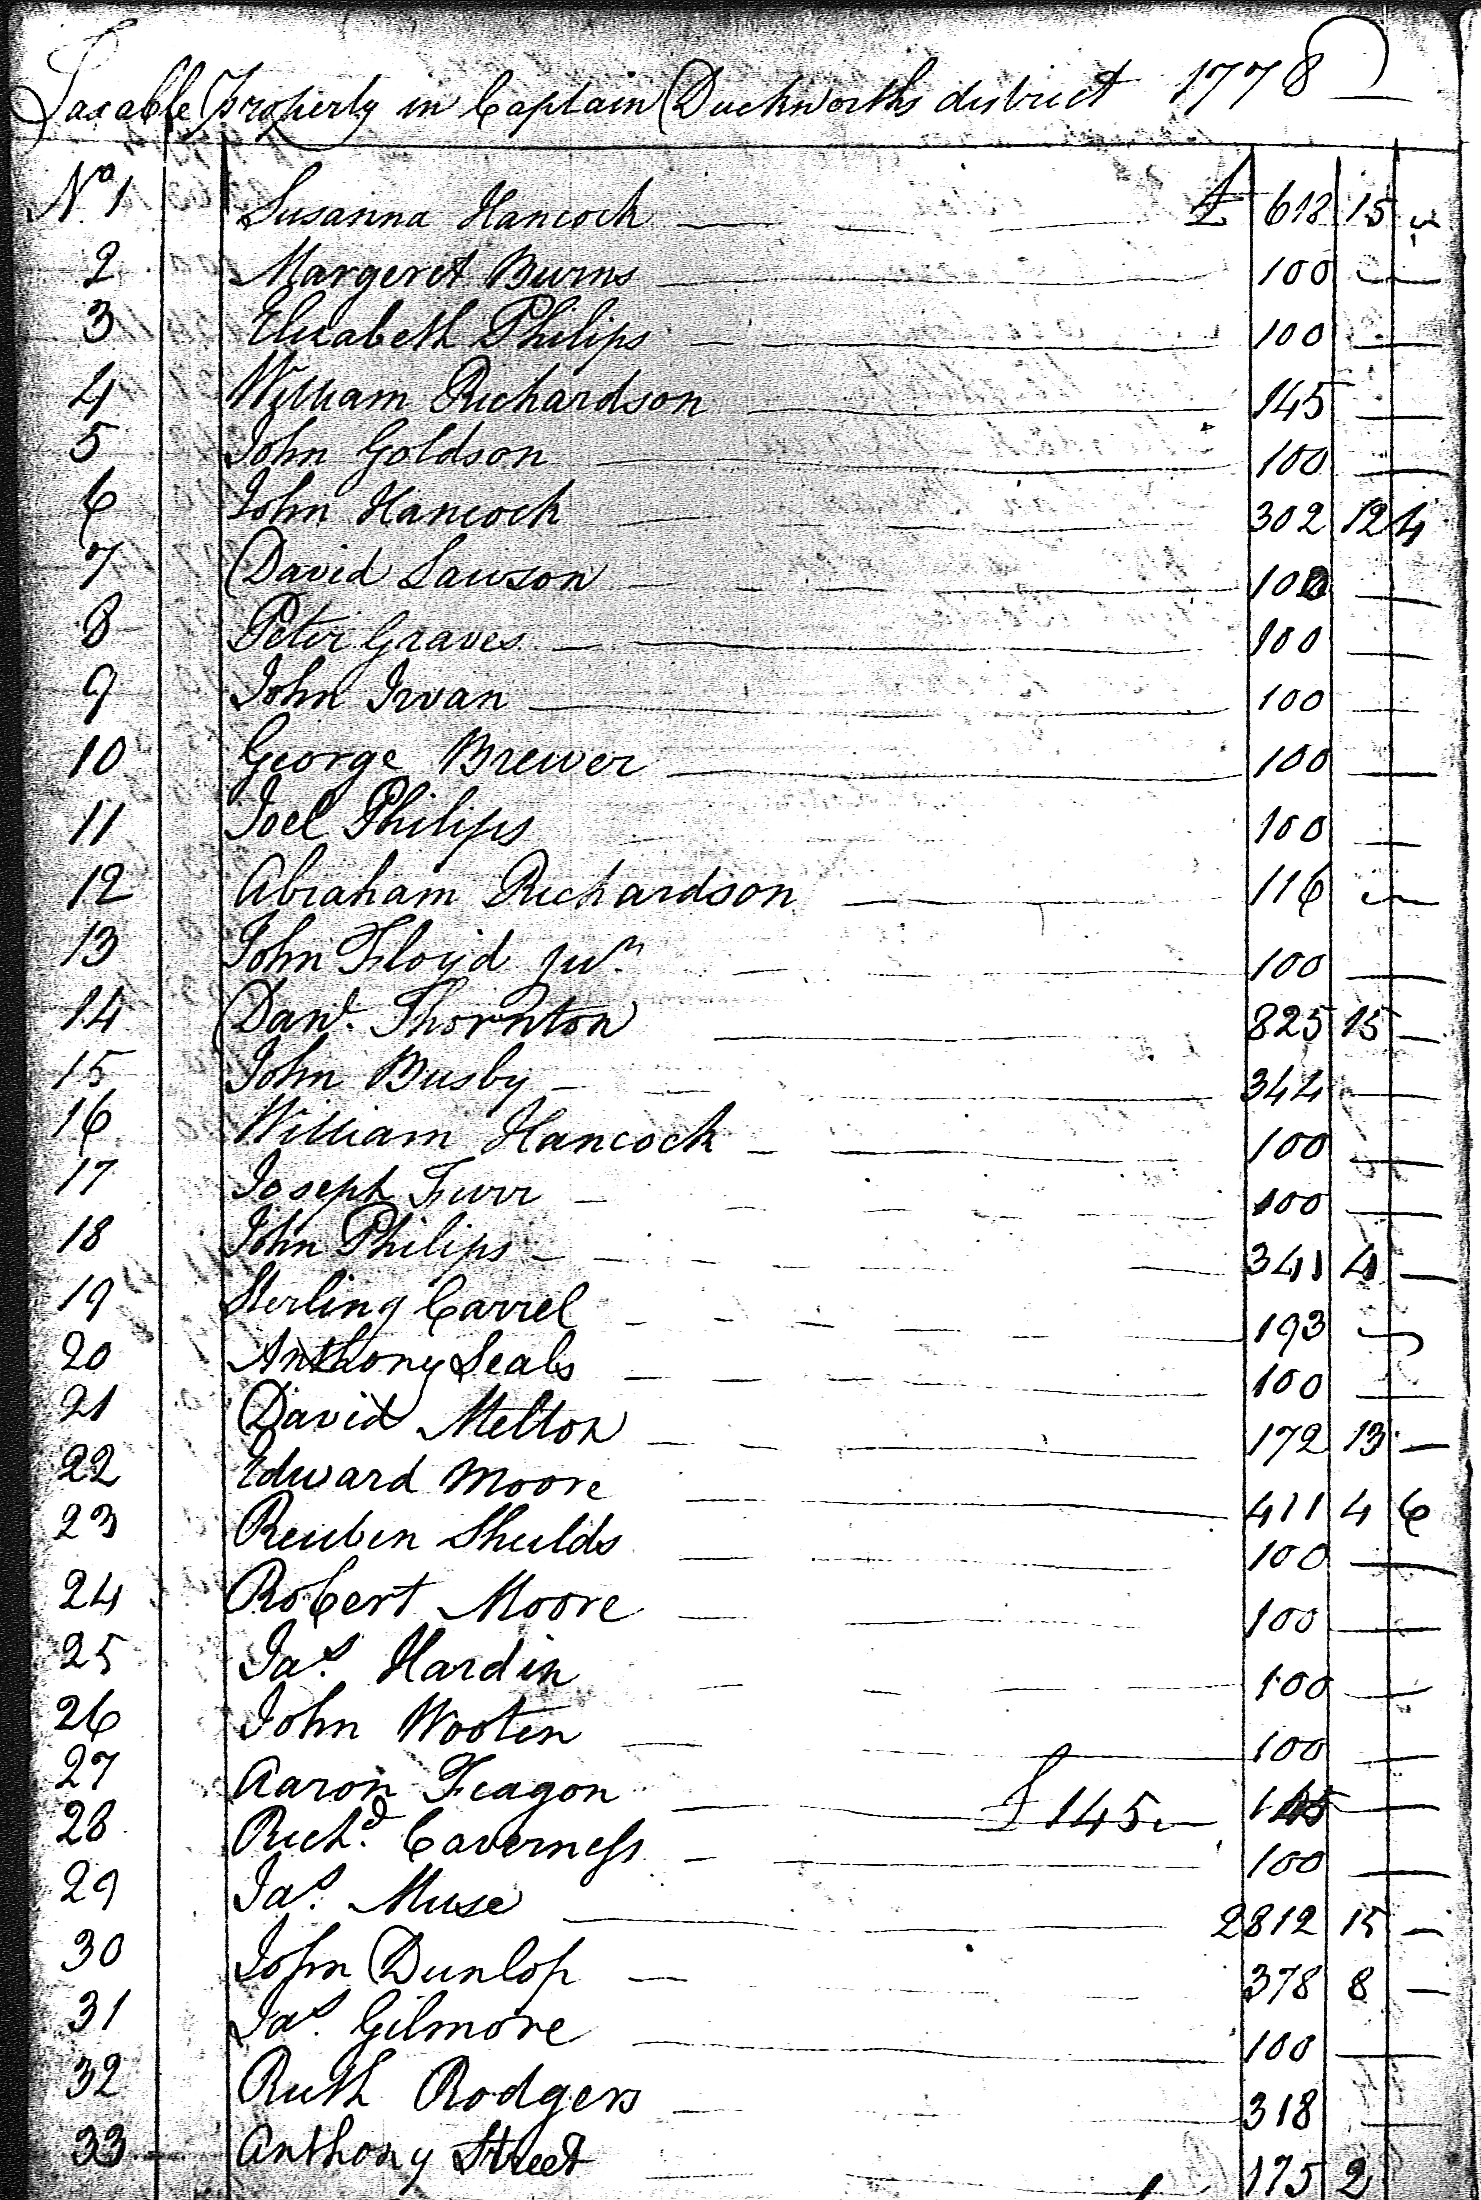 Taxable Property in Captain Duckworths district 1778
No 1 Susanna Hancock — £ 618 15 —
2 Margeret Burns — 100 —
3 Elizabeth Philips — 100 —
4 William Richardson — 145 —
5 John Goldson — 100 —
6 John Hancock — 302 12 4
7 David Lawson — 100 —
8 Peter Graves — 100 —
9 John Irvan — 100 —
10 George Brewer — 100 —
11 Joel Philips 100 —
12 Abraham Richardson — 116 —
13 John Floyd Jur. — 100 —
14 Danl. Thornton — 825 15 —
15 John Busby — 344 —
16 William Hancock — 100 —
17 Joseph Furr — 100 —
18 John Philips — 341 4 —
19 Sterling Carrel — 193 —
20 Anthony Seals — 100 —
21 David Melton — 172 13 —
22 Edward Moore — 411 4 6
23 Reuben Shulds — 100 —
24 Robert Moore — 100 —
25 Jas. Hardin — 100 —
26 John Wooten — 100 —
27 Aaron Feagon — £ 145 — 145 —
28 Richd. Caverness — 100 —
29 Jas. Muse — 2812 15 —
30 John Dunlop — 378 8 —
31 Jas. Gilmore — 100 —
32 Ruth Rodgers — 318 —
33 Anthony Street — 175 2